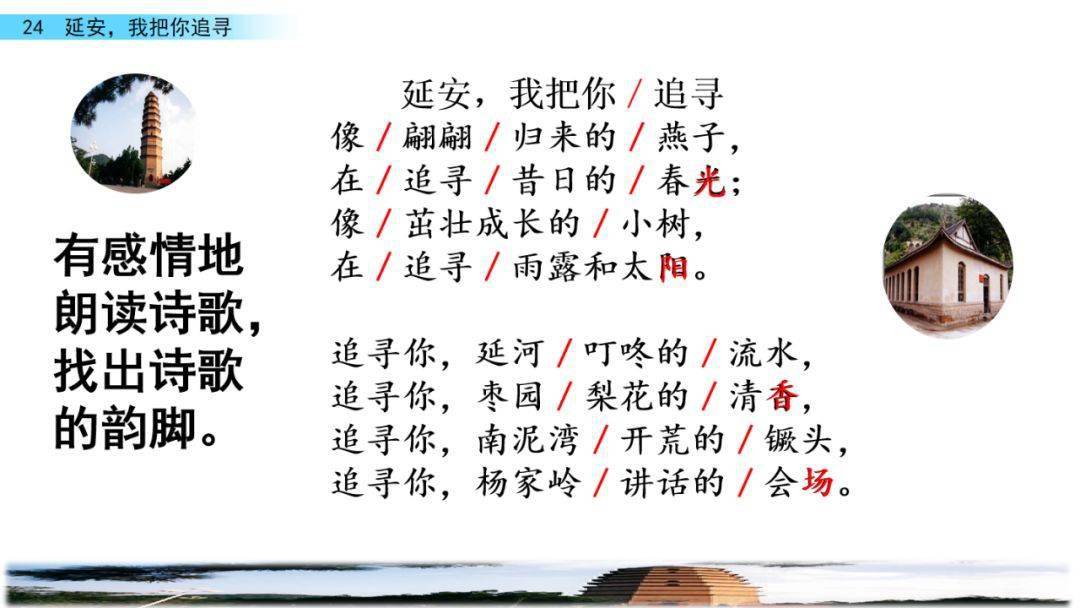 24 延安，我把你追寻
有感情地
朗读诗歌，
找出诗歌
的韵脚。
延安，我把你/追寻
像/翩翩/归来的/燕子，
在/追寻/昔日的/春光；
像/茁壮成长的/小树，
在/追寻/雨露和太阳。
追寻你，延河/叮咚的/流水，
追寻你，枣园/梨花的/清香，
追寻你，南泥湾/开荒的/镢头，
追寻你，杨家岭/讲话的/会场。